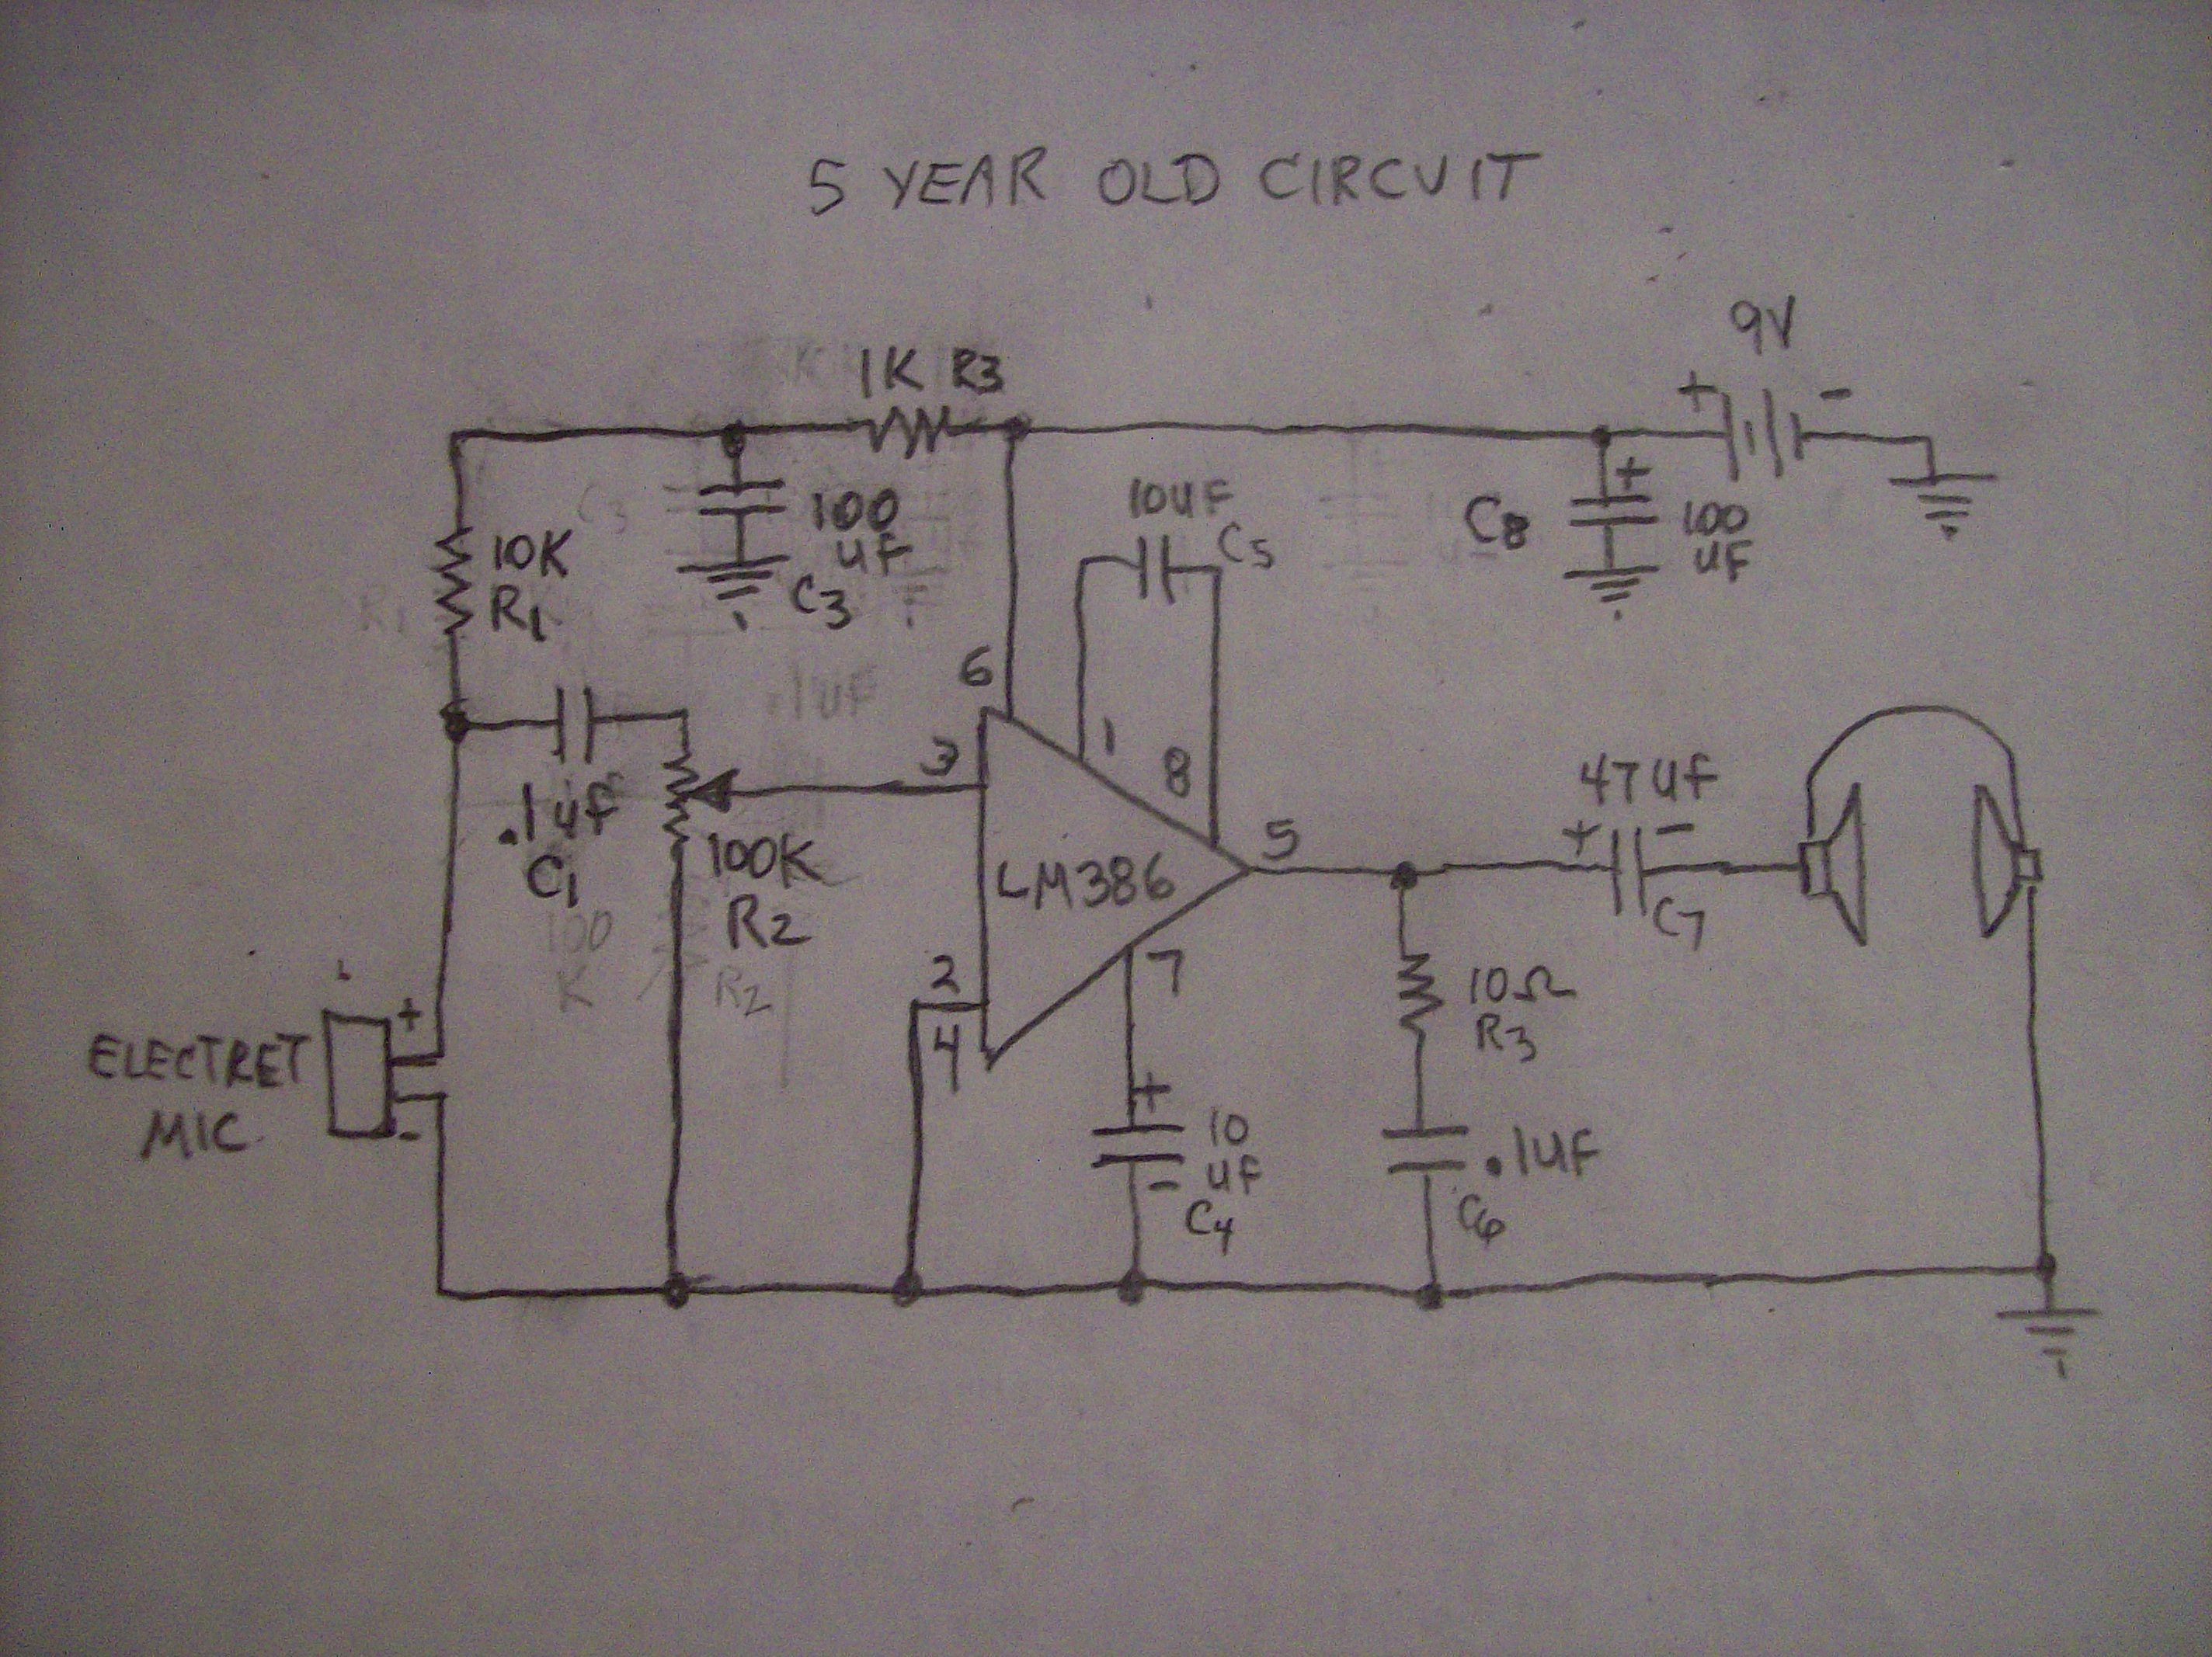 5 YEAR OLD CIRCUIT
9V
+ -
1K R3
10K
R1
100
uF
C3
10uF
C5
C8
+
100
uF
6
3
1
8
.1uF
C1
100K
R2
LM386
5
47uF
+ -
C7
2
4
7
10Ω
R3
ELECTRET
MIC
+
-
+
10
uF
-
C4
.1uF
C6
.1uF
100
K
R2
R1
C3